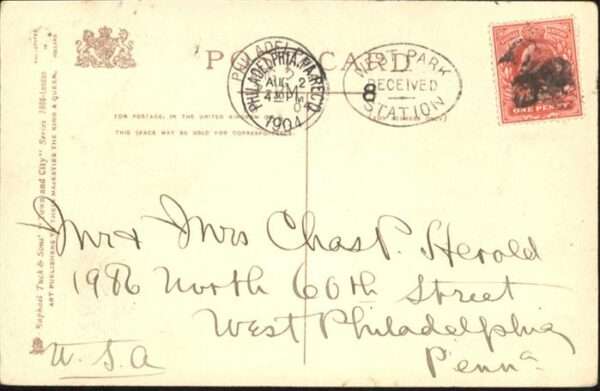 POST CARD
PHILADELPHIA, PA. REC'D
AUG 2
4 PM
1904
WEST PARK
RECEIVED
STATION
8
ONE PENNY
FOR POSTAGE, IN THE UNITED KINGDOM
THIS SPACE MAY BE USED FOR CORRESPONDENCE
Raphael Tuck & Sons' "Town and City" Series 2006 London
ART PUBLISHERS TO THEIR MAJESTIES THE KING & QUEEN.
Mr & Mrs Chas P. Herold
1986 North 60th Street
West Philadelphia
Penna
U.S.A